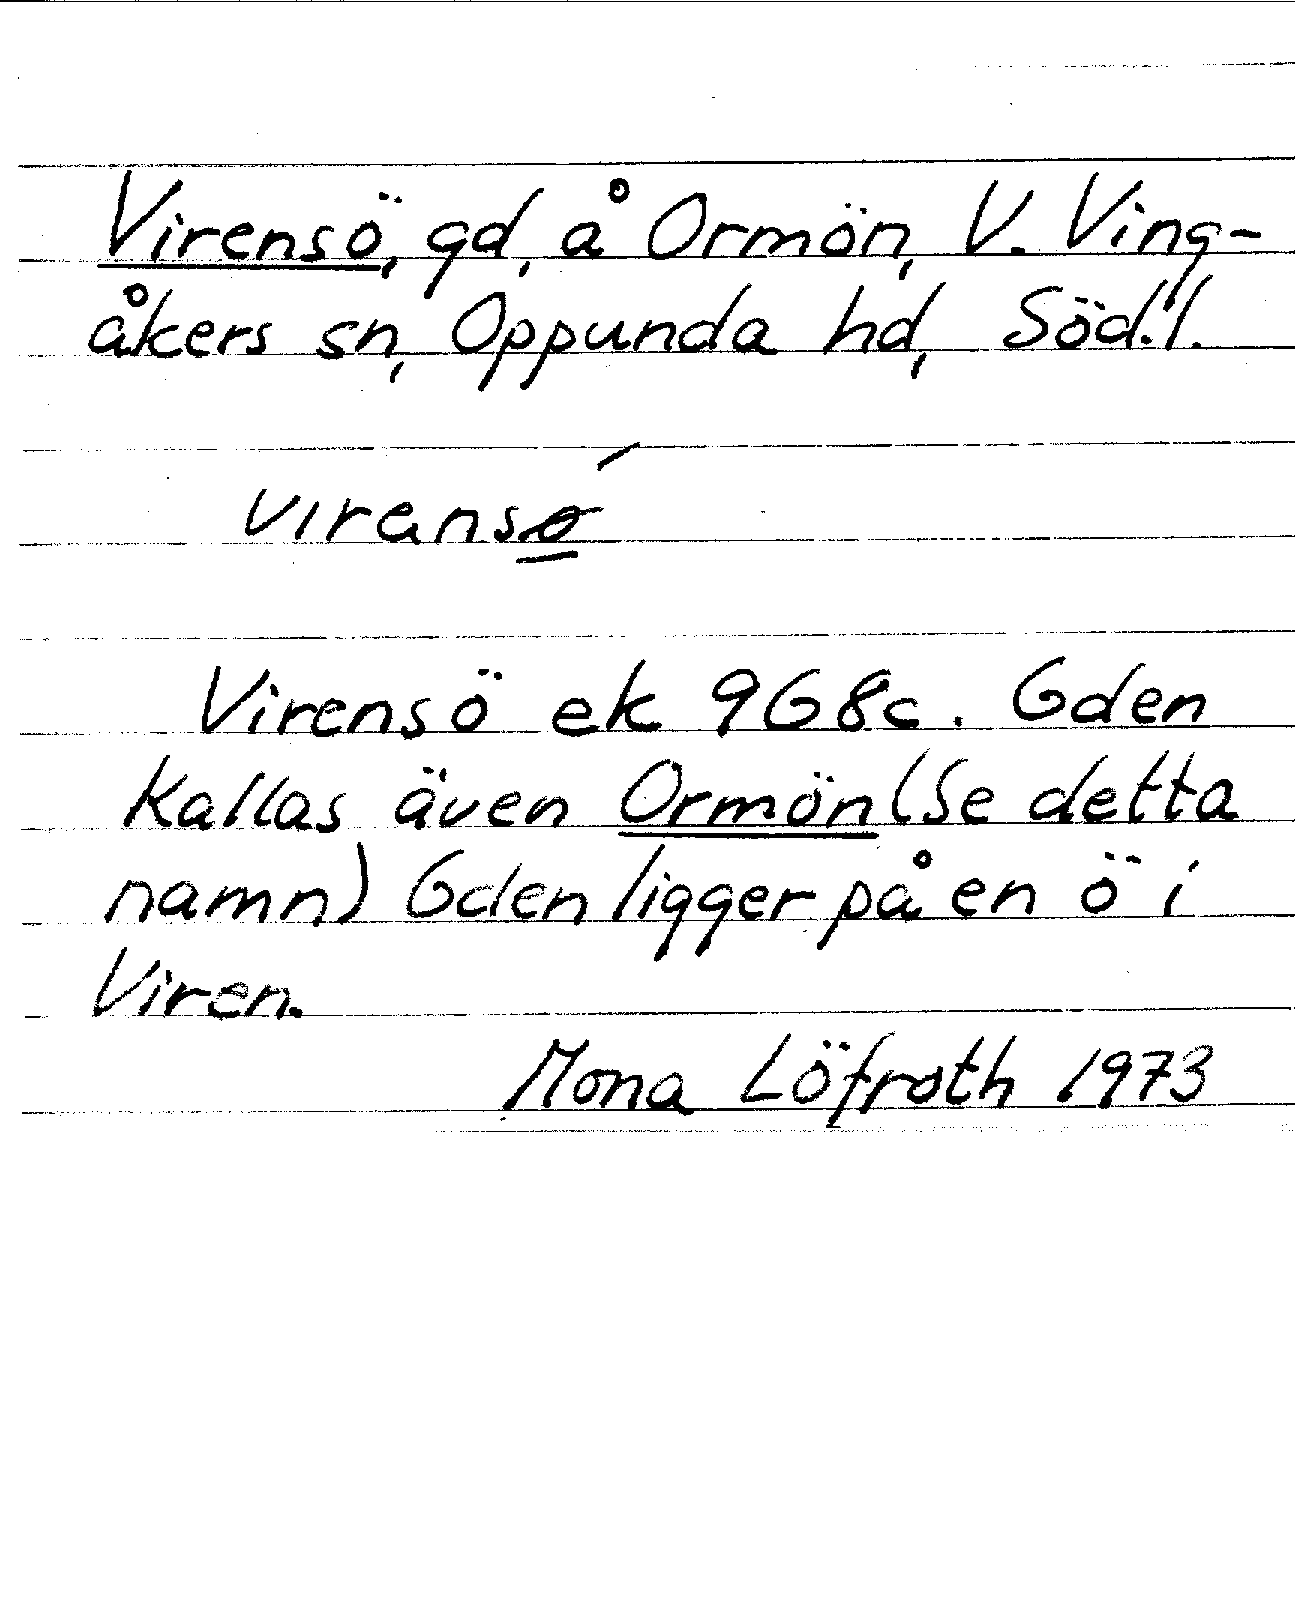 Virensö, gd, å Ormön, V. Ving-
åkers sn, Oppunda hd, Söd.l.
viransǿ̱
Virensö ek 9G8c. Gden
kallas även Ormön (Se detta
namn) Gden ligger på en ö i
Viren.
Mona Löfroth 1973